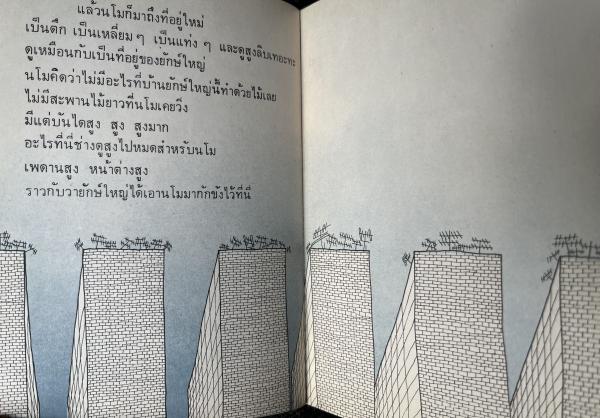 แล้วนโมก็มาถึงที่อยู่ใหม่
เป็นตึก เป็นเหลี่ยม ๆ เป็นแท่ง ๆ และดูสูงลิบเทอะทะ
ดูเหมือนกับเป็นที่อยู่ของยักษ์ใหญ่
นโมคิดว่าไม่มีอะไรที่บ้านยักษ์ใหญ่นี้ทำด้วยไม้เลย
ไม่มีสะพานไม้ยาวที่นโมเคยวิ่ง
มีแต่บันไดสูง สูง สูงมาก
อะไรที่นี่ช่างดูสูงไปหมดสำหรับนโม
เพดานสูง หน้าต่างสูง
ราวกับว่ายักษ์ใหญ่ได้เอานโมมากักขังไว้ที่นี่